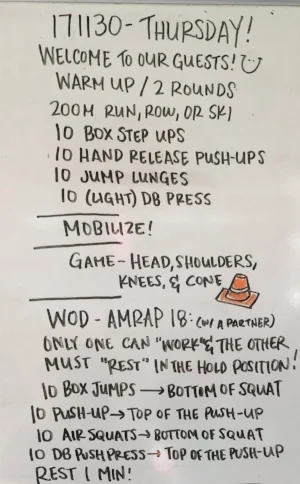 171130 - THURSDAY!
WELCOME TO OUR GUESTS!
WARM UP / 2 ROUNDS
200M RUN, ROW, OR SKI
10 BOX STEP UPS
10 HAND RELEASE PUSH-UPS
10 JUMP LUNGES
10 (LIGHT) DB PRESS
MOBILIZE!
GAME - HEAD, SHOULDERS,
KNEES, & CONE
WOD - AMRAP 18: (W/ A PARTNER)
ONLY ONE CAN "WORK" & THE OTHER
MUST "REST" IN THE HOLD POSITION!
10 BOX JUMPS → BOTTOM OF SQUAT
10 PUSH-UP → TOP OF THE PUSH-UP
10 AIR SQUATS → BOTTOM OF SQUAT
10 DB PUSH PRESS → TOP OF THE PUSH-UP
REST 1 MIN!